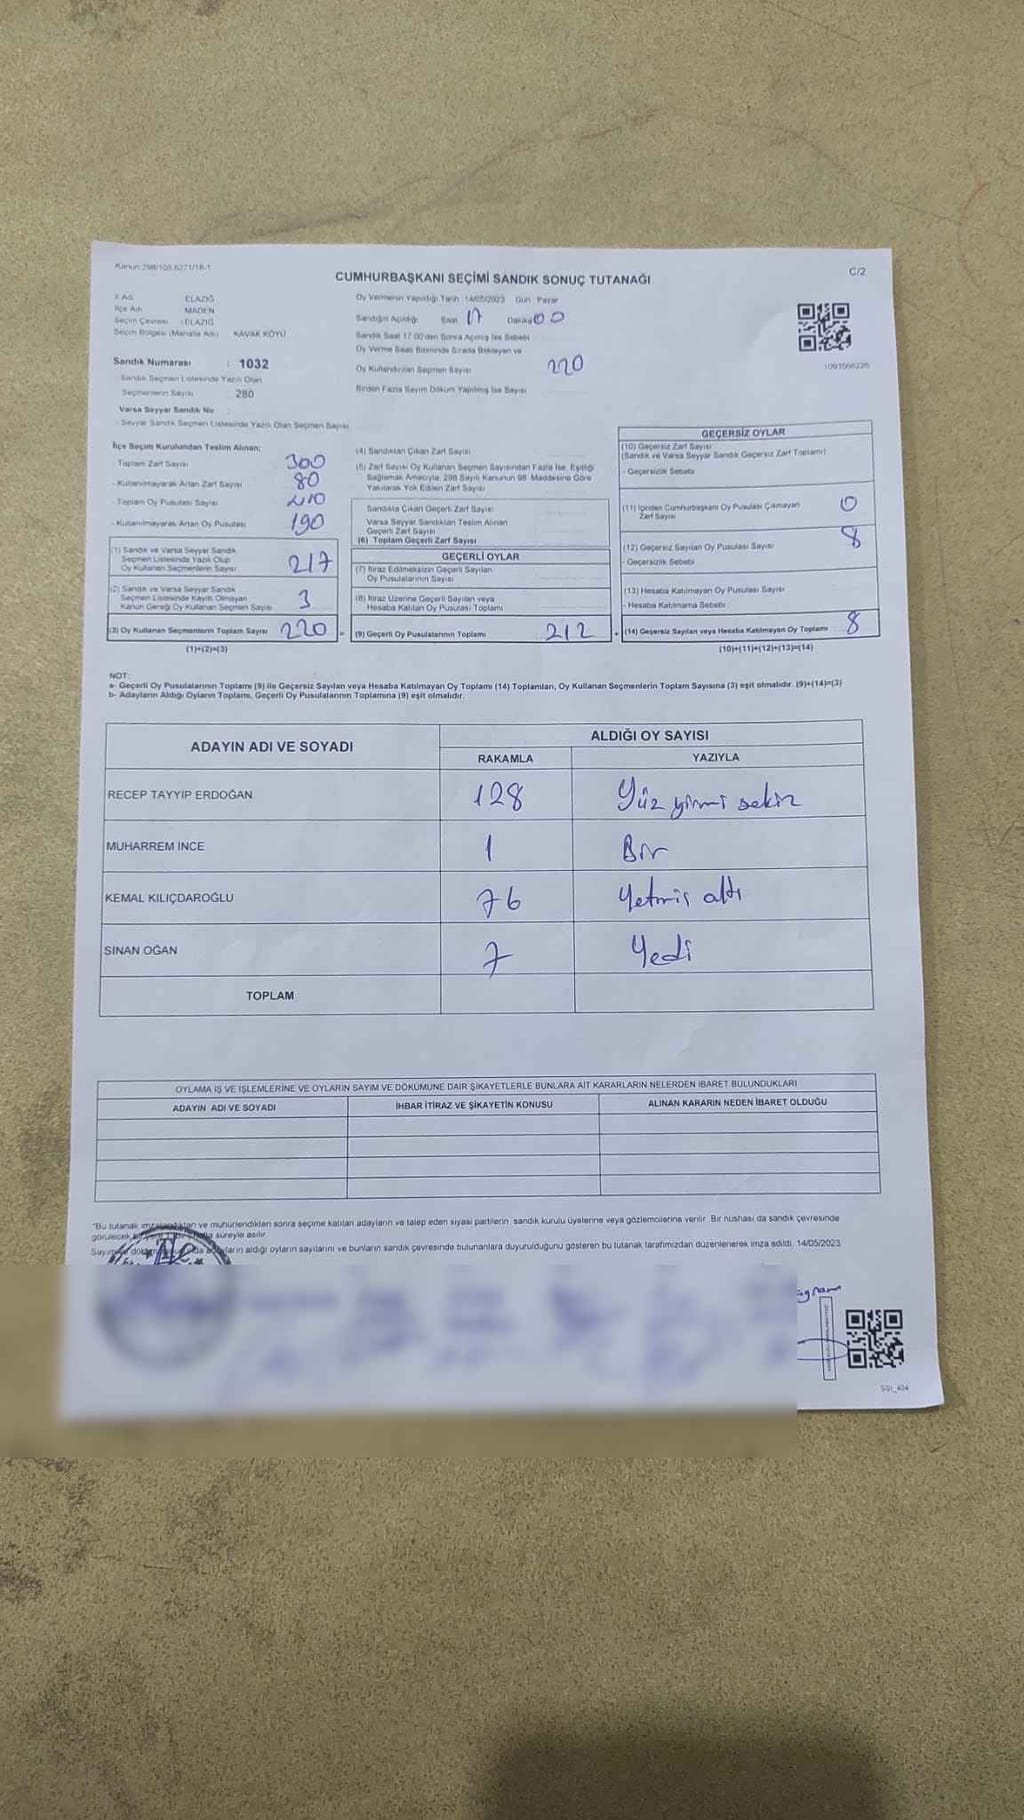 Kanun:298/105.6271/18-1
CUMHURBAŞKANI SEÇİMİ SANDIK SONUÇ TUTANAĞI
C/2
İl Adı : ELAZIĞ
İlçe Adı : MADEN
Seçim Çevresi : ELAZIĞ
Seçim Bölgesi (Mahalle Adı) : KAVAK KÖYÜ
Sandık Numarası : 1032
Sandık Seçmen Listesinde Yazılı Olan
Seçmenlerin Sayısı : 280
Varsa Seyyar Sandık No :
- Seyyar Sandık Seçmen Listesinde Yazılı Olan Seçmen Sayısı
Oy Vermenin Yapıldığı Tarih : 14/05/2023 Gün : Pazar
Sandığın Açıldığı Saat : 17 Dakika 00
Sandık Saat 17:00'den Sonra Açılmış İse Sebebi
Oy Verme Saati Bitiminde Sırada Bekleyen ve
Oy Kullandırılan Seçmen Sayısı 220
Birden Fazla Sayım Döküm Yapılmış İse Sayısı
1093566226
İlçe Seçim Kurulundan Teslim Alınan;
- Toplam Zarf Sayısı 300
- Kullanılmayarak Artan Zarf Sayısı 80
- Toplam Oy Pusulası Sayısı 410
- Kullanılmayarak Artan Oy Pusulası 190
(1) Sandık ve Varsa Seyyar Sandık
Seçmen Listesinde Yazılı Olup
Oy Kullanan Seçmenlerin Sayısı 217
(2) Sandık ve Varsa Seyyar Sandık
Seçmen Listesinde Kayıtlı Olmayan
Kanun Gereği Oy Kullanan Seçmen Sayısı 3
(3) Oy Kullanan Seçmenlerin Toplam Sayısı 220 =
(1)+(2)=(3)
(4) Sandıktan Çıkan Zarf Sayısı
(5) Zarf Sayısı Oy Kullanan Seçmen Sayısından Fazla İse, Eşitliği
Sağlamak Amacıyla, 298 Sayılı Kanunun 98. Maddesine Göre
Yakılarak Yok Edilen Zarf Sayısı
Sandıkta Çıkan Geçerli Zarf Sayısı
Varsa Seyyar Sandıktan Teslim Alınan
Geçerli Zarf Sayısı
(6) Toplam Geçerli Zarf Sayısı
GEÇERLİ OYLAR
(7) İtiraz Edilmeksizin Geçerli Sayılan
Oy Pusulalarının Sayısı
(8) İtiraz Üzerine Geçerli Sayılan veya
Hesaba Katılan Oy Pusulası Toplamı
(9) Geçerli Oy Pusulalarının Toplamı 212 +
GEÇERSİZ OYLAR
(10) Geçersiz Zarf Sayısı
(Sandık ve Varsa Seyyar Sandık Geçersiz Zarf Toplamı)
- Geçersizlik Sebebi
(11) İçinden Cumhurbaşkanı Oy Pusulası Çıkmayan
Zarf Sayısı 0
(12) Geçersiz Sayılan Oy Pusulası Sayısı 8
- Geçersizlik Sebebi
(13) Hesaba Katılmayan Oy Pusulası Sayısı
- Hesaba Katılmama Sebebi
(14) Geçersiz Sayılan veya Hesaba Katılmayan Oy Toplamı 8
(10)+(11)+(12)+(13)=(14)
NOT:
a- Geçerli Oy Pusulalarının Toplamı (9) ile Geçersiz Sayılan veya Hesaba Katılmayan Oy Toplamı (14) Toplamları, Oy Kullanan Seçmenlerin Toplam Sayısına (3) eşit olmalıdır. (9)+(14)=(3)
b- Adayların Aldığı Oyların Toplamı, Geçerli Oy Pusulalarının Toplamına (9) eşit olmalıdır.
ADAYIN ADI VE SOYADI
ALDIĞI OY SAYISI
RAKAMLA YAZIYLA
RECEP TAYYİP ERDOĞAN 128 Yüz yirmi sekiz
MUHARREM İNCE 1 Bir
KEMAL KILIÇDAROĞLU 76 Yetmiş altı
SİNAN OĞAN 7 Yedi
TOPLAM
OYLAMA İŞ VE İŞLEMLERİNE VE OYLARIN SAYIM VE DÖKÜMÜNE DAİR ŞİKAYETLERLE BUNLARA AİT KARARLARIN NELERDEN İBARET BULUNDUKLARI
ADAYIN ADI VE SOYADI İHBAR İTİRAZ VE ŞİKAYETİN KONUSU ALINAN KARARIN NEDEN İBARET OLDUĞU
*Bu tutanak imzalandıktan ve mühürlendikten sonra seçime katılan adayların ve talep eden siyasi partilerin sandık kurulu üyelerine veya gözlemcilerine verilir. Bir nüshası da sandık çevresinde
görülecek bir yere süreyle asılır.
adayların aldığı oyların sayılarını ve bunların sandık çevresinde bulunanlara duyurulduğunu gösteren bu tutanak tarafımızdan düzenlenerek imza edildi. 14/05/2023
SSI_404